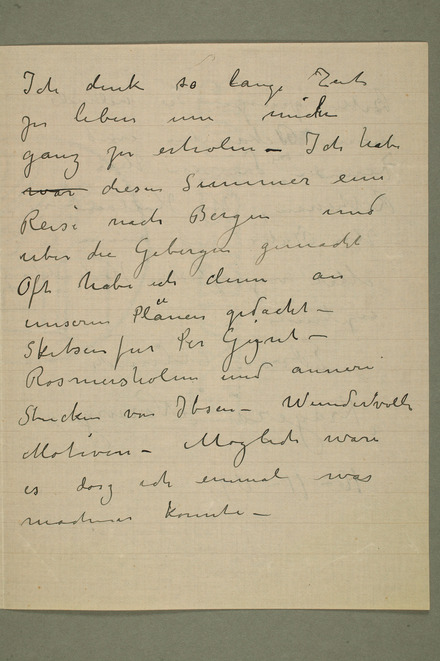 Ich denk so lange Zeit
zu leben um mich
ganz zu erholen – Ich habe
war diesen Summer eine
Reise nach Bergen und
uber die Gebergen gemacht
Oft habe ich denn an
unseren Plänen gedacht –
Skitsen fur Per Gynt –
Rosmersholm und annere
Stucken von Ibsen – Wundervolle
Motiven – Moglich ware
es dasz ich einmal was
machen konnte –